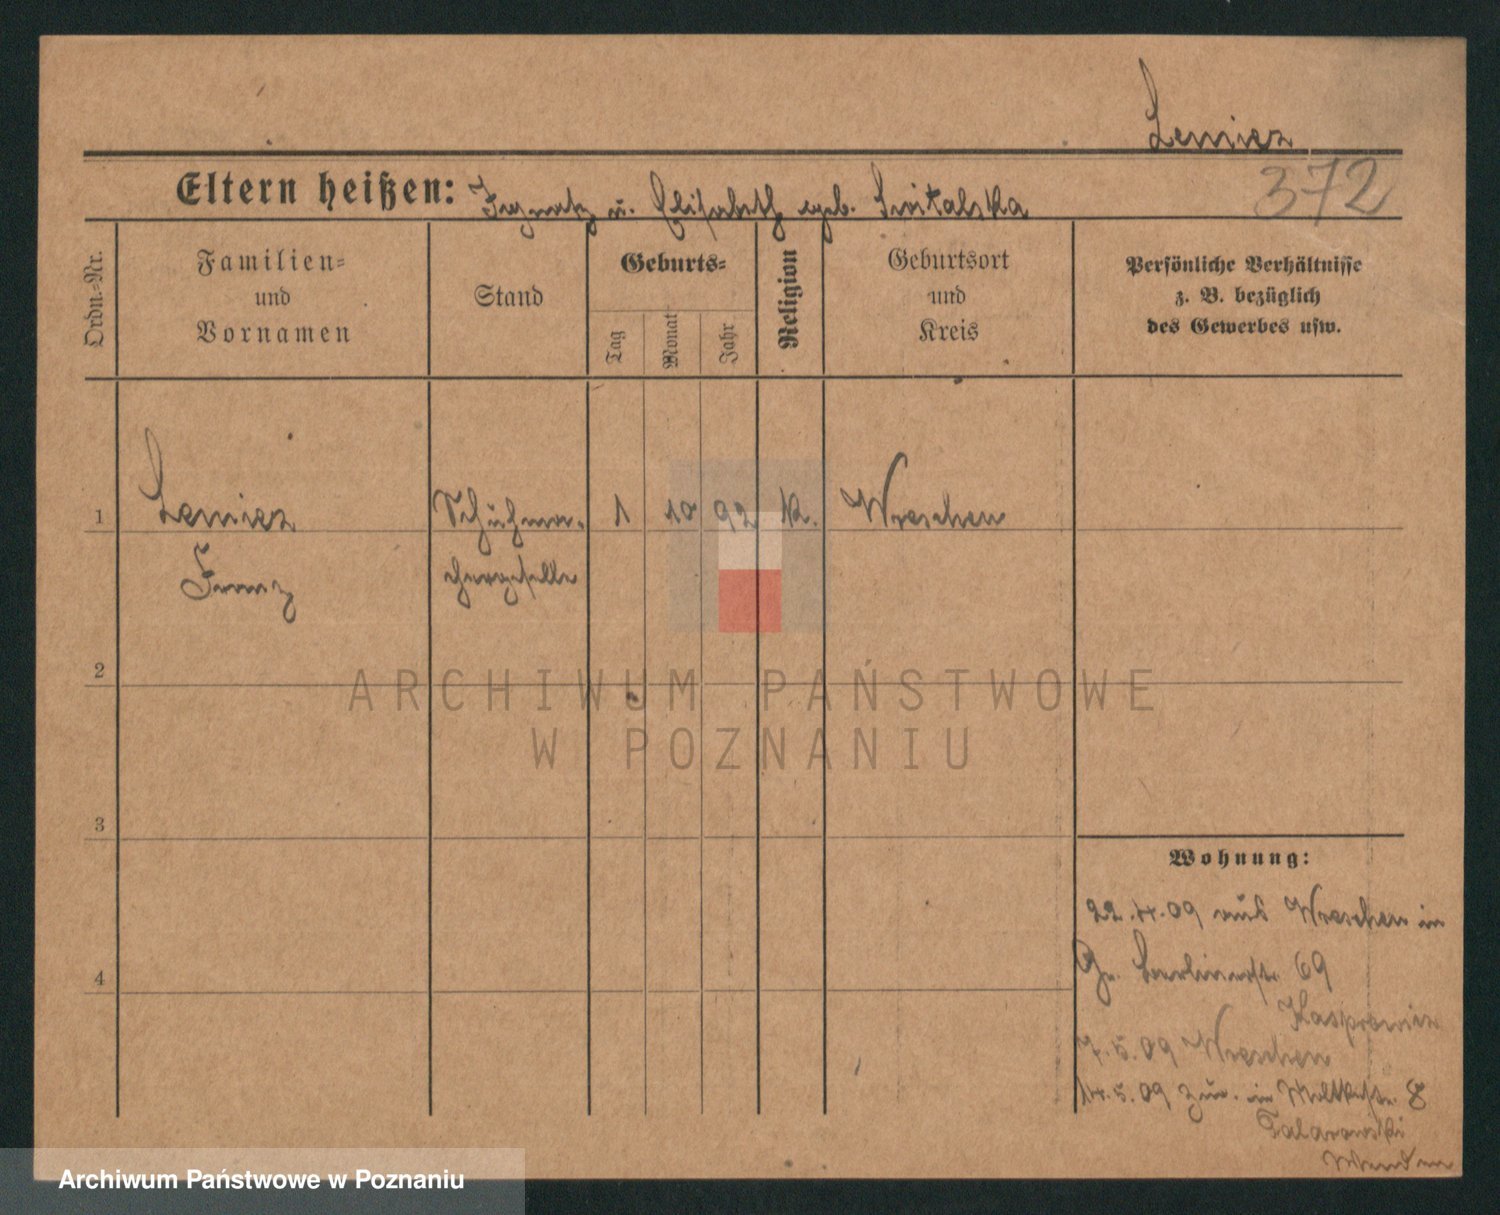 Lewicz
372
Eltern heißen: Ignatz u. Elisabeth geb. Switalska
Ordn.-Nr.
Familien-
und
Vornamen
Stand
Geburts-
Tag
Monat
Jahr
Religion
Geburtsort
und
Kreis
Persönliche Verhältnisse
z. B. bezüglich
des Gewerbes usw.
1
Lewicz
Franz
Schuhma-
chergeselle
1 10 92 k.
Wreschen
2
3
4
ARCHIWUM PAŃSTWOWE
W POZNANIU
Wohnung:
22.4.09 aus Wreschen in
Gr. Berlinerstr. 69
Kasprowicz
7.5.09 Wreschen
14.5.09 zur. in Moltkestr. 8
Archiwum Państwowe w Poznaniu